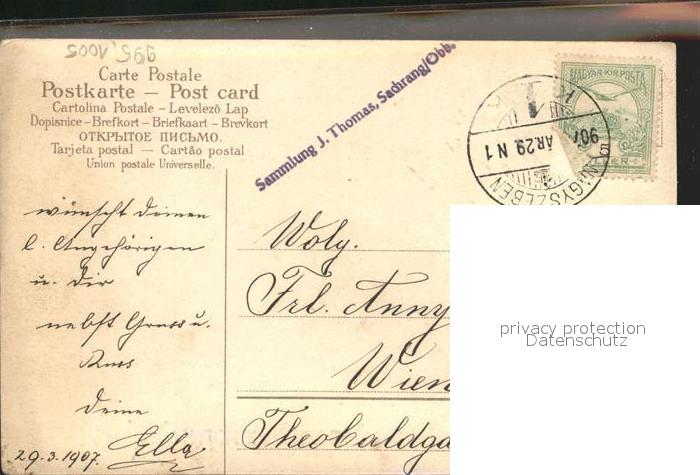 995.1005
Carte Postale
Postkarte — Post card
Cartolina Postale – Levelező Lap
Dopisnice – Brefkort – Briefkaart – Brevkort
ОТКРЫТОЕ ПИСЬМО.
Tarjeta postal — Cartão postal
Union postale Universelle.
Sammlung J. Thomas, Sachrang/Obb.
MAGYAR KIR. POSTA
907 MAR 29. N 1
NAGYSZEBEN
wünscht Deinen
l. Angehörigen
u. Dir
nebst Gruss u.
Kuss
Deine
Ella
29.3.1907.
Wolg.
Frl. Anny
Wien
Theobaldga
privacy protection
Datenschutz